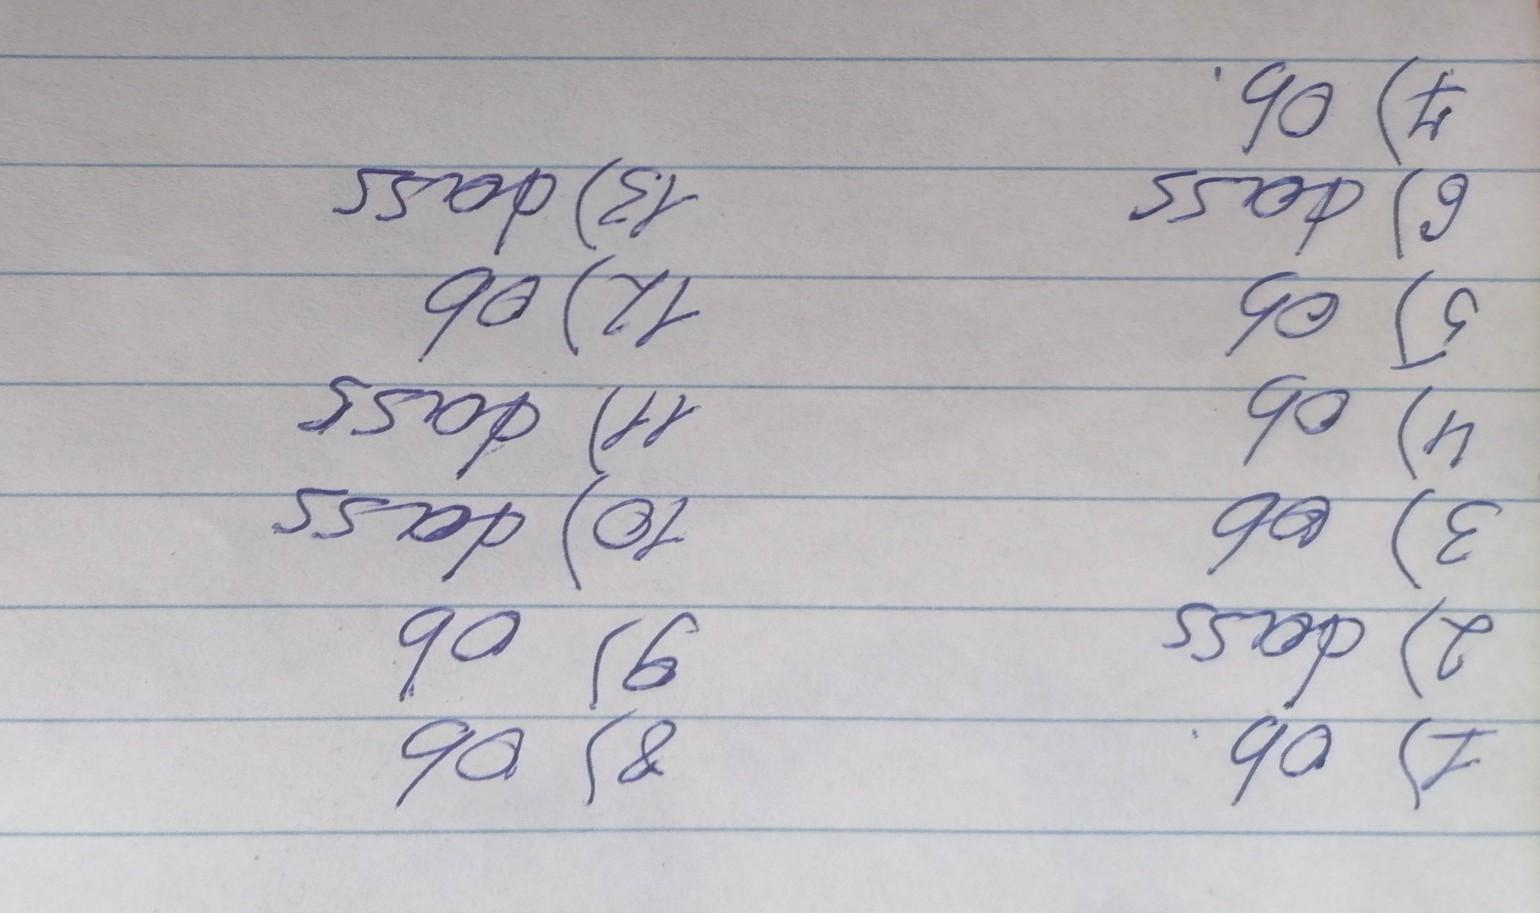 1) ob
2) dass
3) ob
4) ob
5) ob
6) dass
7) ob
8) ob
9) ob
10) dass
11) dass
12) ob
13) dass